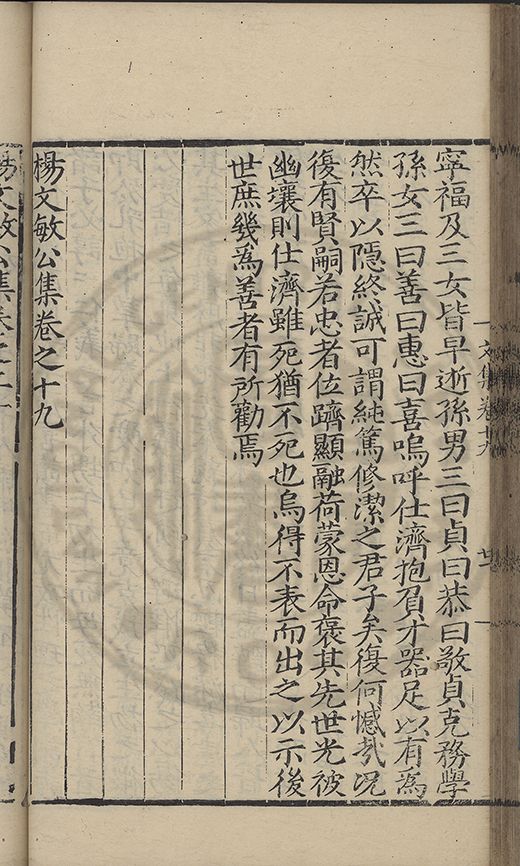 寧福及三女皆早逝孫男三曰貞曰恭曰敬貞克務學
孫女三曰善曰惠曰喜嗚呼仕濟抱負才器足以有為
然卒以隱終誠可謂純篤修潔之君子矣復何憾哉況
復有賢嗣若忠者位躋顯融荷蒙恩命褒其先世光被
幽壤則仕濟雖死猶不死也烏得不表而出之以示後
世庶幾爲善者有所勸焉
楊文敏公集卷之十九
楊文敏公集卷之二十
文集卷十九